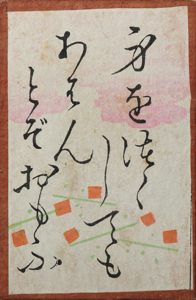 身を徒く
しても
あはん
とぞおもふ